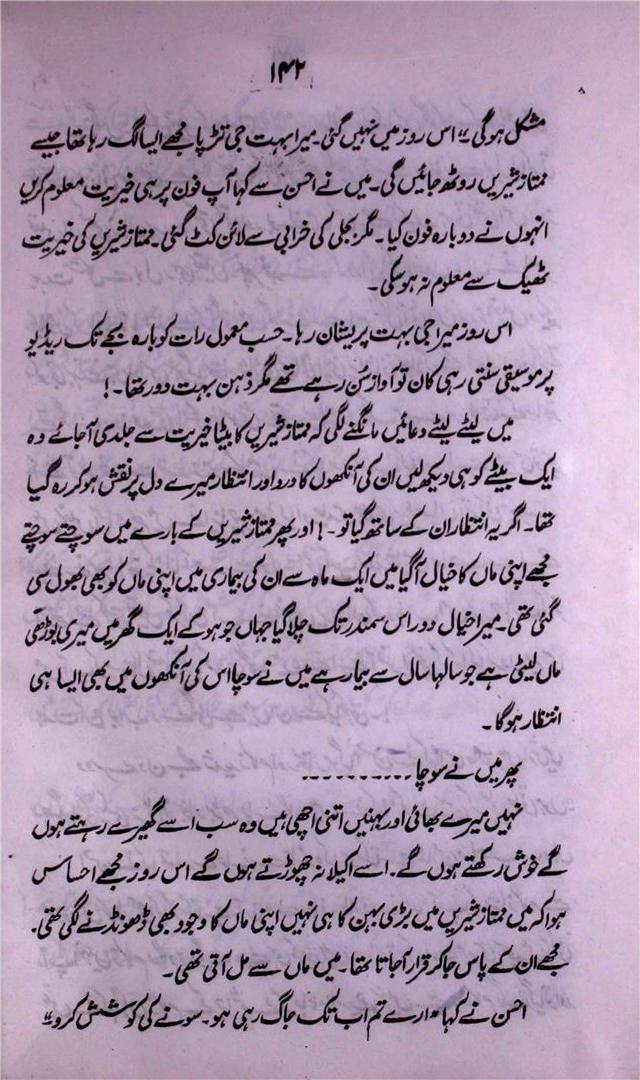 ۱۴۲
مشکل ہوگی“ اس روز میں نہیں گئی۔ میرا بہت جی تڑپا مجھے ایسا لگ رہا تھا جیسے
ممتاز شیریں روٹھ جائیں گی۔ میں نے احسن سے کہا آپ فون پر ہی خیریت معلوم کریں
انہوں نے دوبارہ فون کیا۔ مگر بجلی کی خرابی سے لائن کٹ گئی۔ ممتاز شیریں کی خیریت
ٹھیک سے معلوم نہ ہوسکی۔
اس روز میرا جی بہت پریشان رہا۔ حسب معمول رات کو بارہ بجے تک ریڈیو
پر موسیقی سنتی رہی کان تو آواز سُن رہے تھے مگر ذہن بہت دور تھا۔!
میں لیٹے لیٹے دعائیں مانگنے لگی کہ ممتاز شیریں کا بیٹا خیریت سے جلدی آجائے وہ
ایک بیٹے کو ہی دیکھ لیں ان کی آنکھوں کا درد اور انتظار میرے دل پر نقش ہوکر رہ گیا
تھا۔ اگر یہ انتظار ان کے ساتھ گیا تو۔! اور پھر ممتاز شیریں کے بارے میں سوچتے سوچتے
مجھے اپنی ماں کا خیال آگیا میں ایک ماہ سے ان کی بیماری میں اپنی ماں کو بھی بھول سی
گئی تھی۔ میرا خیال دور اس سمندر تک چلا گیا جہاں جوہو کے ایک گھر میں میری بوڑھی
ماں لیٹی ہے جو سالہا سال سے بیمار ہے میں نے سوچا اس کی آنکھوں میں بھی ایسا ہی
انتظار ہوگا۔
پھر میں نے سوچا ..........
نہیں میرے بھائی اور بہنیں اتنی اچھی ہیں وہ سب اسے گھیرے رہتے ہوں
گے خوش رکھتے ہوں گے۔ اسے اکیلا نہ چھوڑتے ہوں گے اس روز مجھے احساس
ہوا کہ میں ممتاز شیریں میں بڑی بہن کا ہی نہیں اپنی ماں کا وجود بھی ڈھونڈنے لگی تھی۔
مجھے ان کے پاس جاکر قرار آجاتا تھا۔ میں ماں سے مل آتی تھی۔
احسن نے کہا ”ارے تم اب تک جاگ رہی ہو۔ سونے کی کوشش کرو“